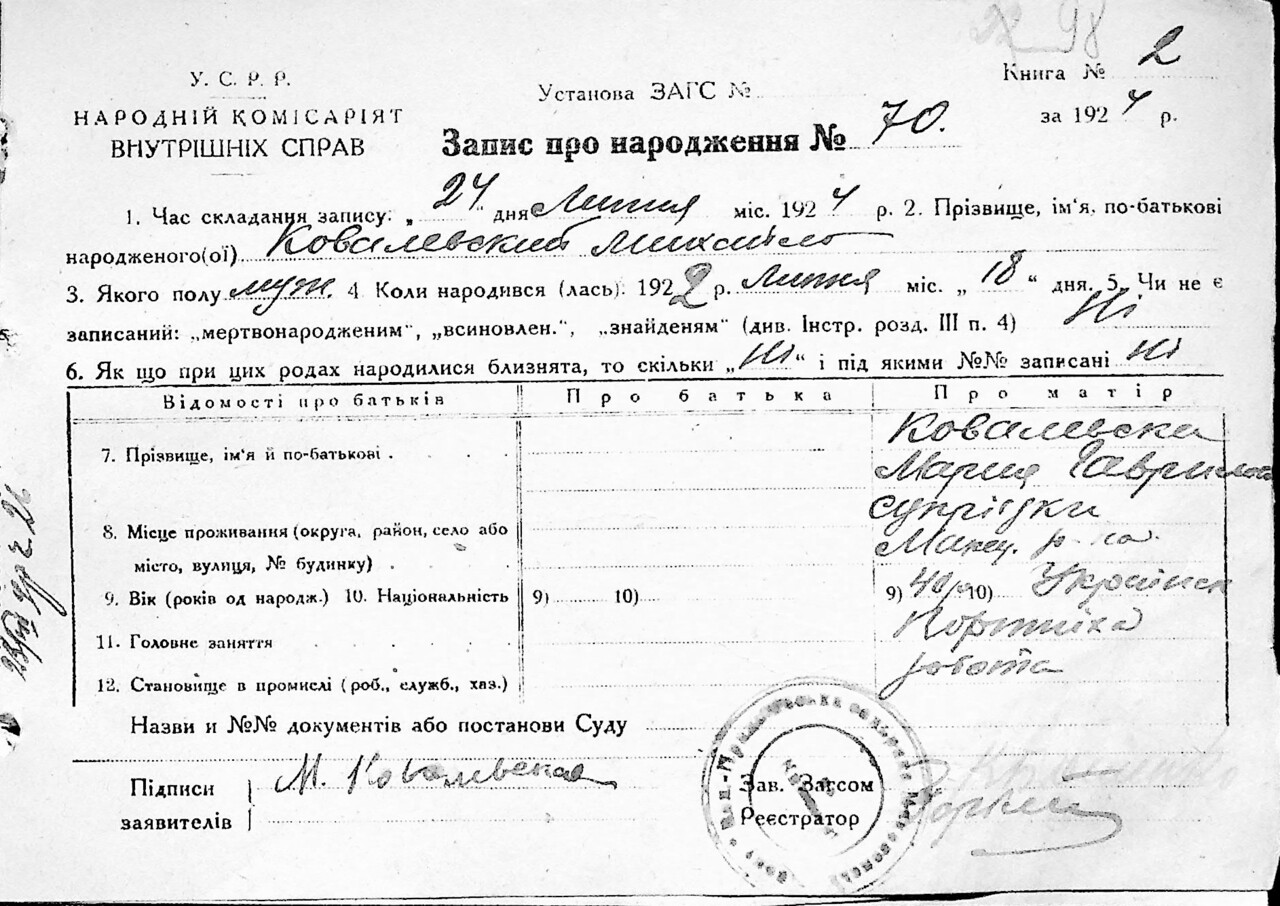 98
У. С. Р. Р.
НАРОДНІЙ КОМІСАРІЯТ
ВНУТРІШНІХ СПРАВ
Установа ЗАГС №
Книга № 2
за 1924 р.
Запис про народження № 70.
1. Час складання запису: „24" дня Липня міс. 1924 р. 2. Прізвище, ім'я, по-батькові
народженого(ої) Ковалевский Михайло
3. Якого полу муж. 4 Коли народився (лась): 1922 р. Липня міс. „18" дня. 5. Чи не є
записаний: „мертвонародженим", „всиновлен.", „знайденям" (див. Інстр. розд. III п. 4) Ні
6. Як що при цих родах народилися близнята, то скільки „Ні" і під якими №№ записані Ні
Відомості про батьків Про батька Про матір
7. Прізвище, ім'я й по-батькові . Ковалевска
Мария
8. Місце проживання (округа, район, село або
місто, вулиця, № будинку) .
9. Вік (років од народж.) 10. Національність 9) 10) 9) 10)
11. Головне заняття
12. Становище в промислі (роб., служб., хаз.) робота
Назви и №№ документів або постанови Суду
Підписи М. Ковалевская
заявителів
Зав. Загсом
Реєстратор